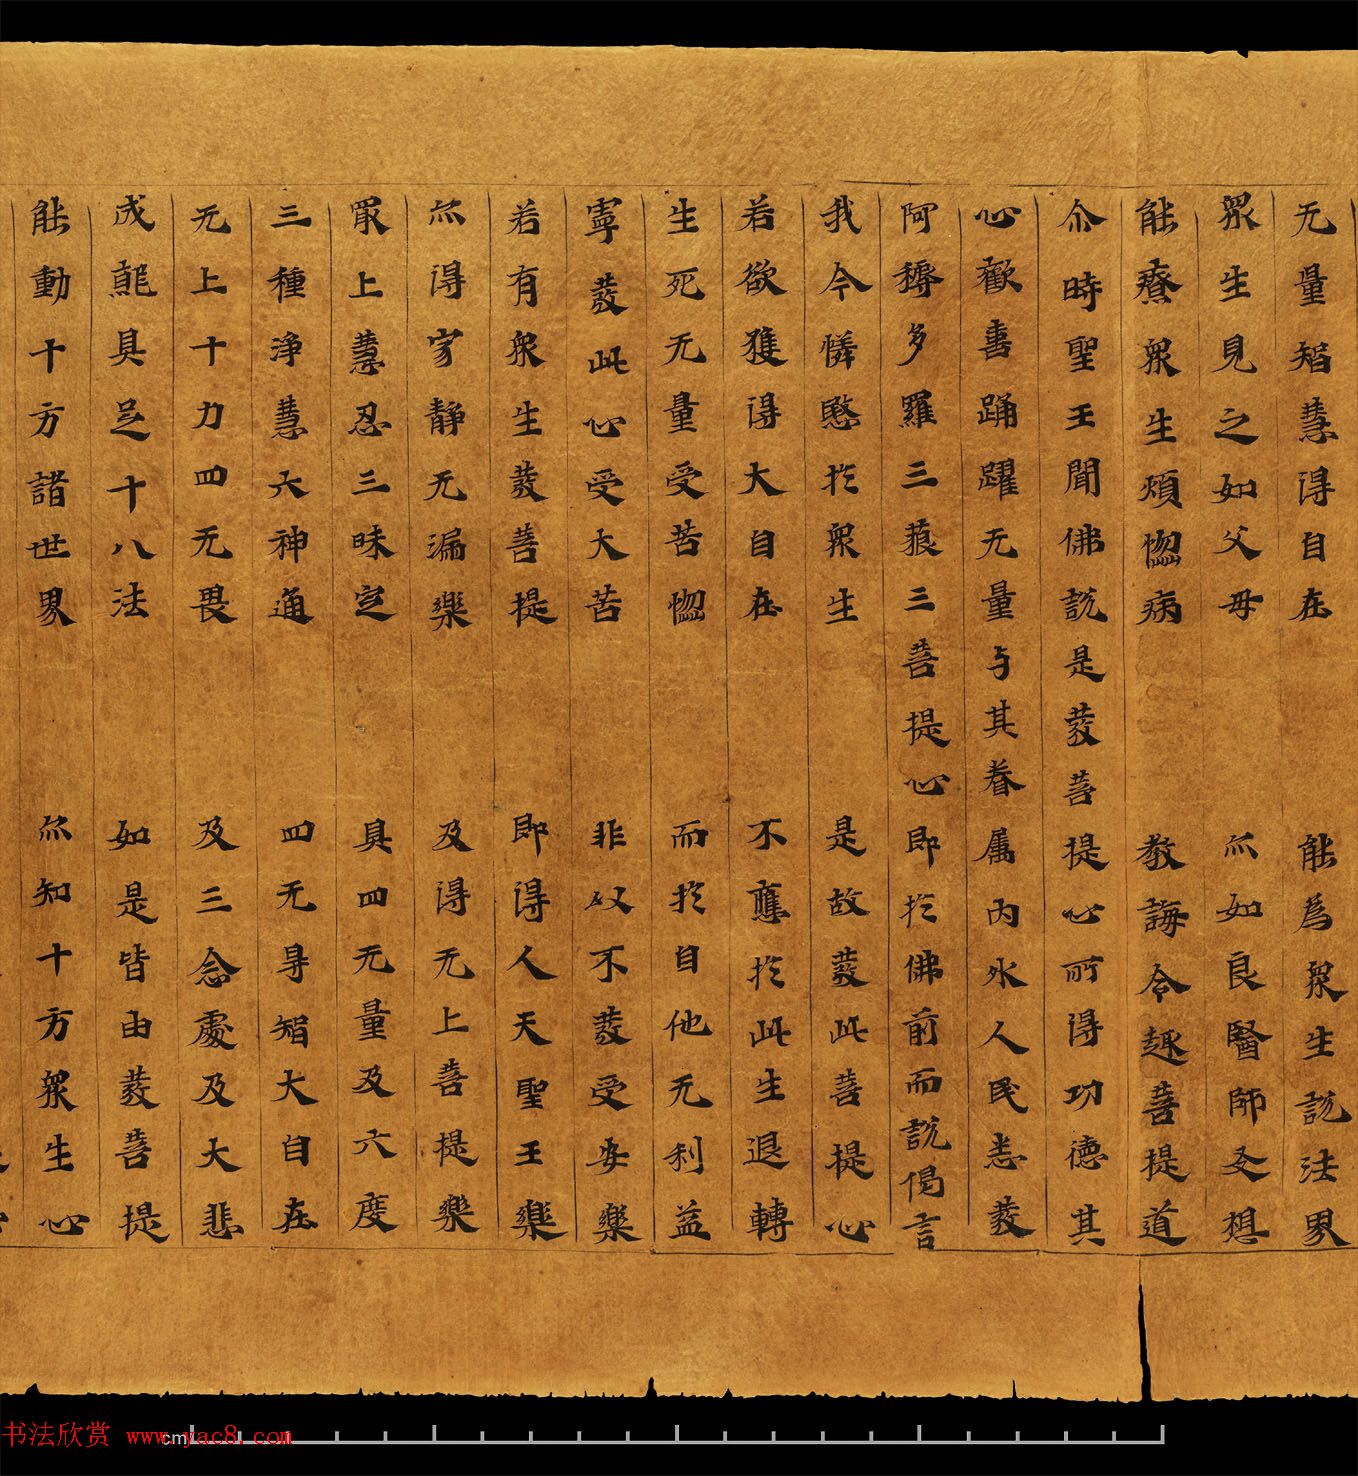 无量智慧得自在　能為眾生說法界
眾生見之如父母　亦如良醫師友想
能療眾生煩惱病　教誨令趣菩提道
尒時聖王聞佛說是發菩提心所得功德其
心歡喜踊躍无量与其眷属内外人民悉發
阿耨多羅三藐三菩提心即於佛前而說偈言
我今憐愍於眾生　是故發此菩提心
若欲獲得大自在　不應於此生退轉
生死无量受苦惱　而於自他无利益
寧發此心受大苦　非以不發受安樂
若有眾生發菩提　即得人天聖王樂
亦得寂靜无漏樂　及得无上菩提樂
最上慧忍三昧定　具四无量及六度
三種淨慧六神通　四无㝵智大自在
无上十力四无畏　及三念處及大悲
成就具足十八法　如是皆由發菩提
能動十方諸世界　亦知十方眾生心
书法欣赏 www.yac8.com
cm